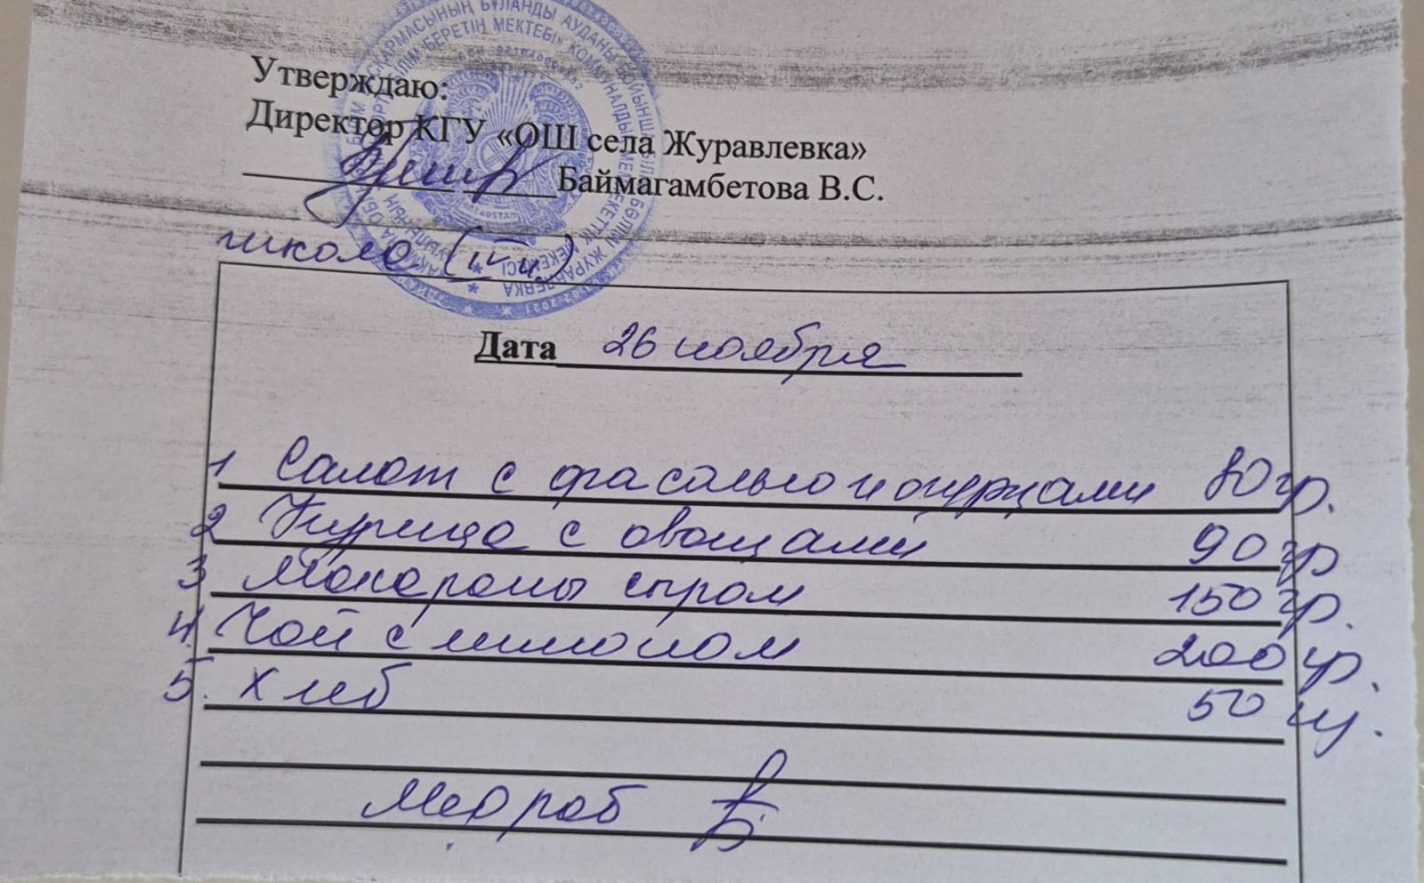 Утверждаю:
Директор КГУ «ОШ села Журавлевка»
Баймагамбетова В.С.
школа (IV ч.)
Дата 26 ноября
1 Салат с фасолью и огурцами 80 гр.
2 Курица с овощами 90 гр
3 Макароны сыром 150 гр.
4. Чай с лимоном 200 гр.
5. Хлеб 50 гр.
Медраб